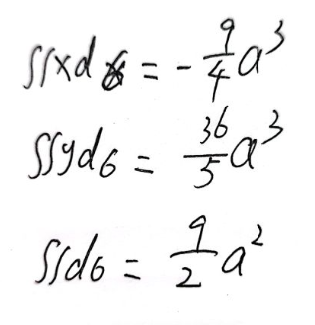 ∬xdσ = -9/4 a³
∬ydσ = 36/5 a³
∬dσ = 9/2 a²